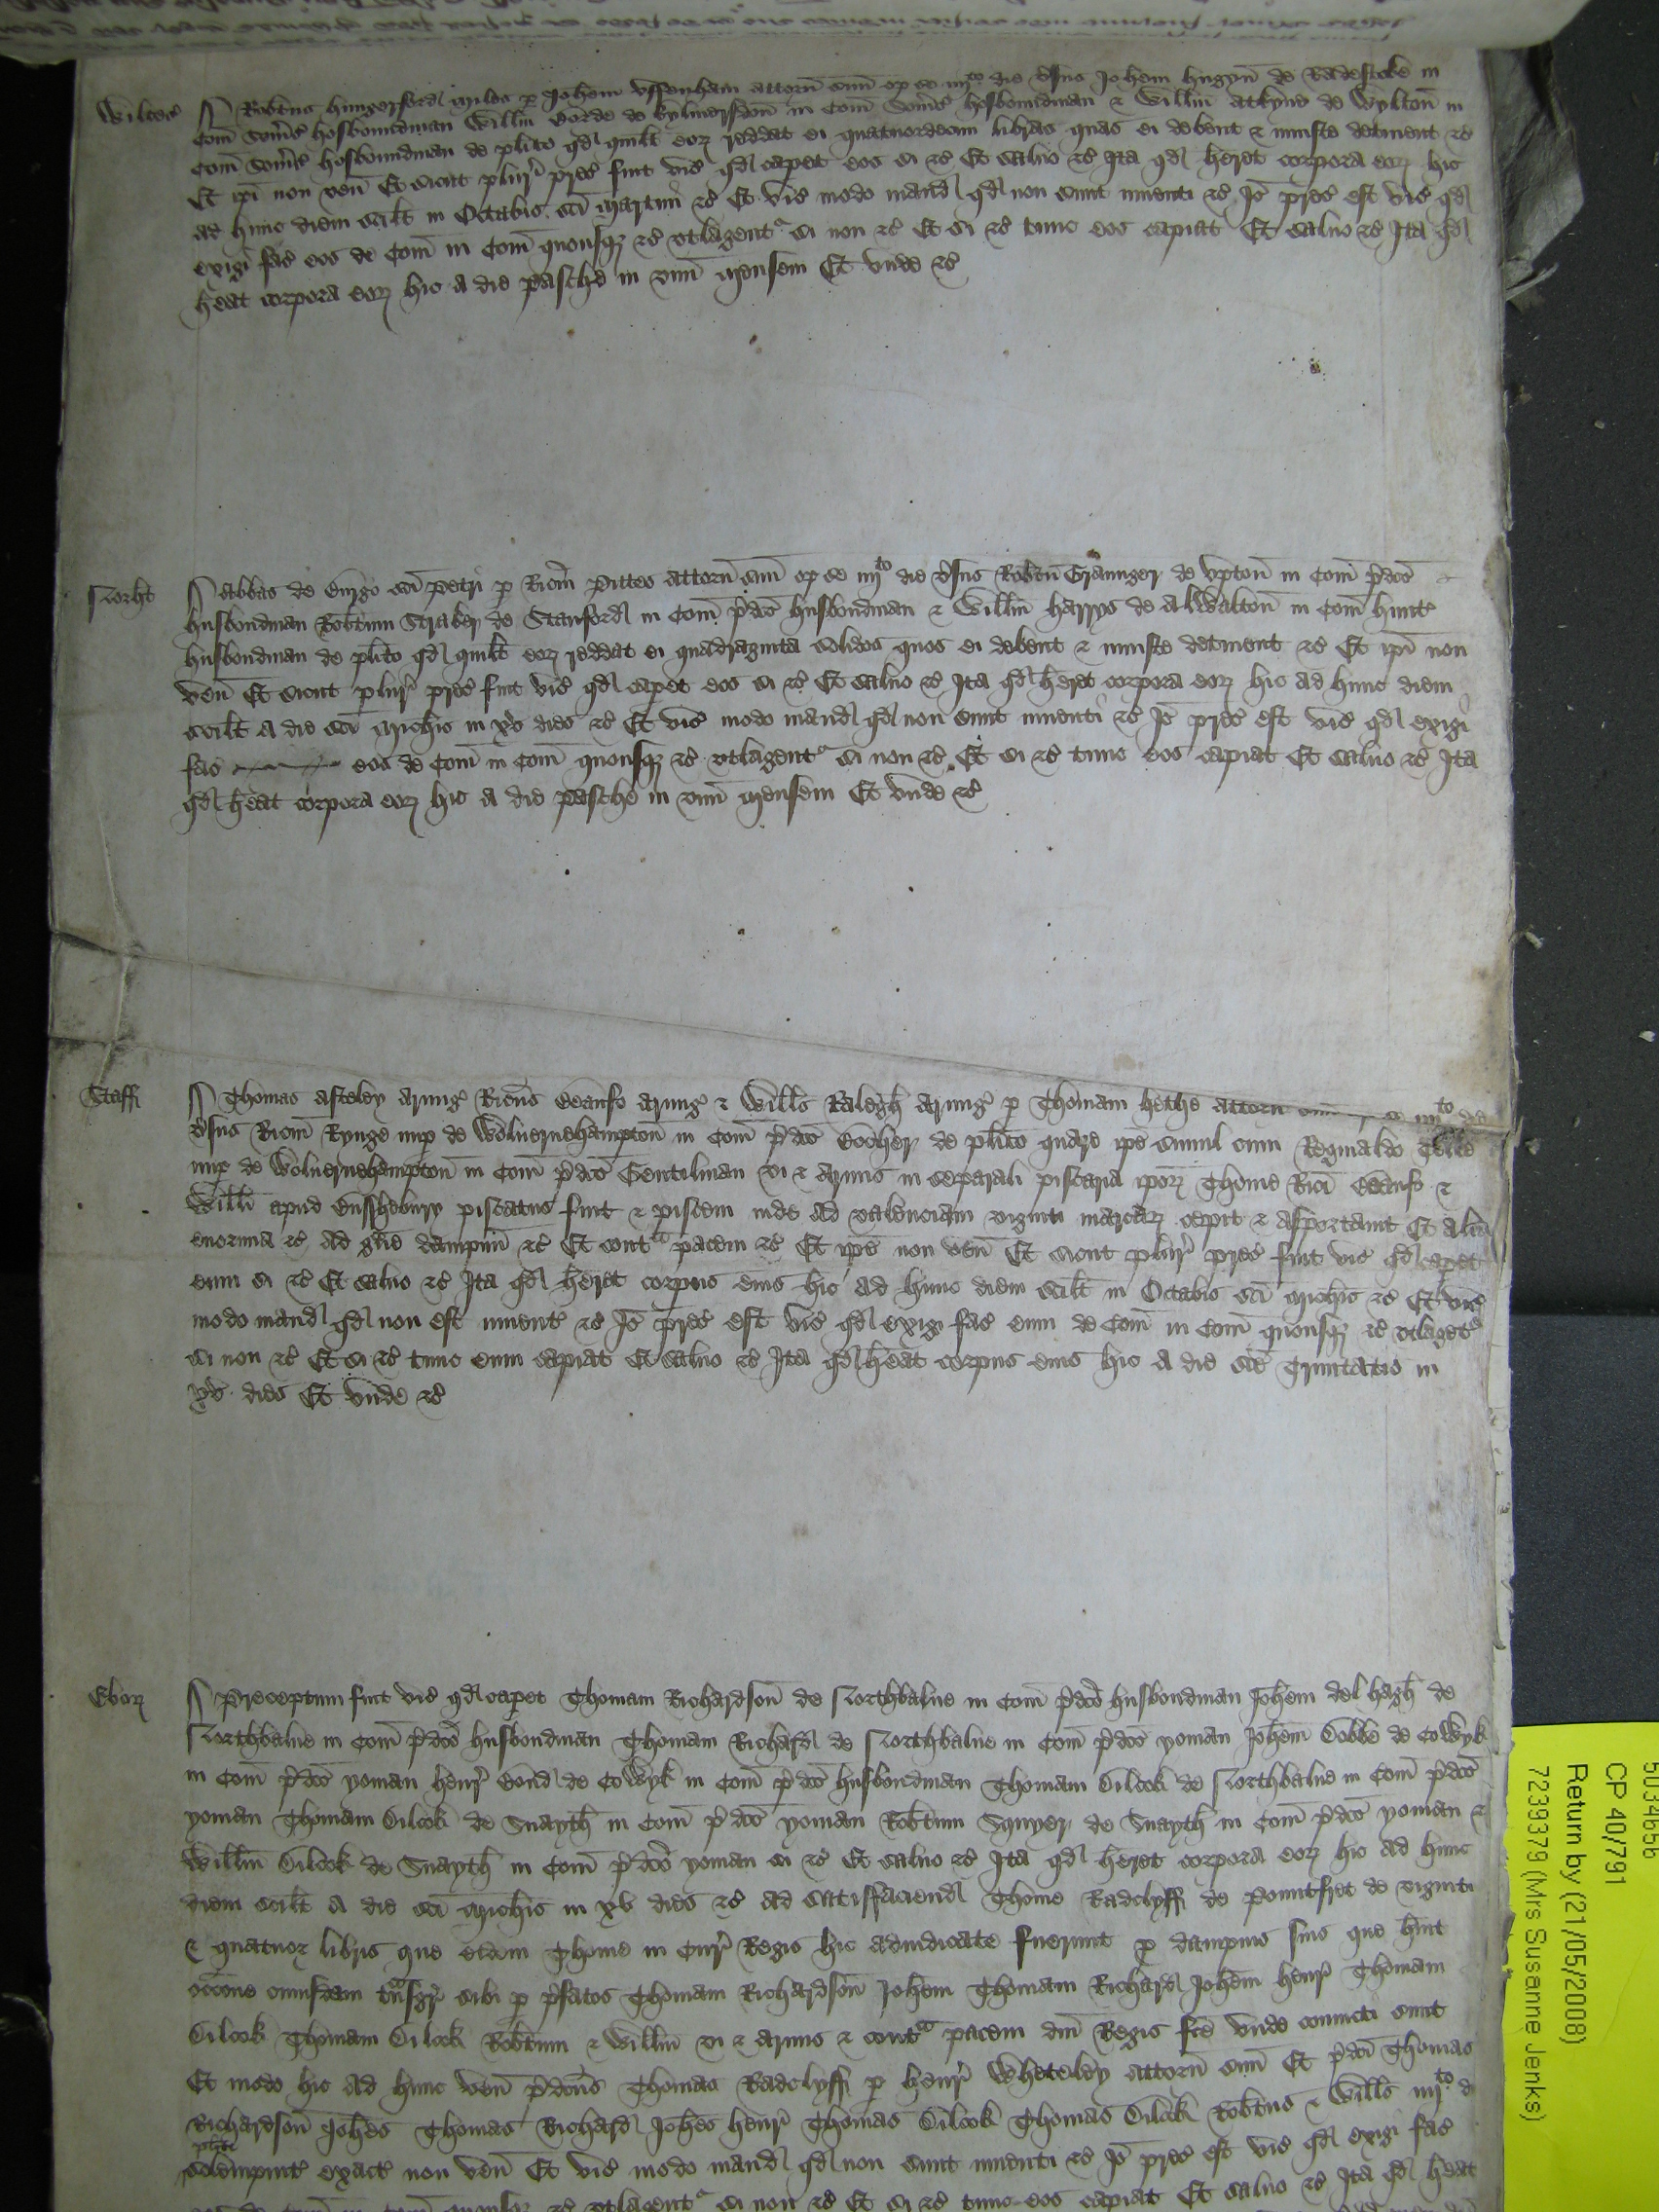 Wiltes' Robtus hungerford miles p Johem Uffenham attorn suu op se iiijto die vsus Johem hugyn de Radestoke in
Com Somes' hosbondman Willm Forde de kylmersdon in Com Somes' hosbondman & Willm Atkyns de Wylton in
Com Somes' hosbondman de plito qd quilt eor reddat ei quatuordecim libras quas ei debent & iniuste detinent &c
Et ipi non ven Et sicut plur' prec' fuit vic' qd caperet eos si &c Et salvo &c Ita qd heret corpora eor hic
ad hunc diem scilt in Octabis sci Martini &c Et vic' modo mand qd non sunt inventi &c Io prec' est vic' qd
exigi fac' eos de Com in Com quousq &c utlagent' si non &c Et si &c tunc eos capiat Et salvo &c Ita qd
heat corpora eor hic a die Pasche in unu mensem Et unde &c
Norht Abbas de Burgo sci Petri p Ricm Pittes attorn suu op se iiijto die vsus Robtu Graunger de Upton in Com pdco
husbondman Robtum Straker de Stanford in Com pdco husbondman & Willm harrys de Alwalton in Com hunt'
husbondman de plito qd quilt eor reddat ei quadraginta solidos quos ei debent & iniuste detinent &c Et ipi non
ven Et sicut plur' prec' fuit vic' qd caperet eos si &c Et salvo &c Ita qd heret corpora eor hic ad hunc diem
scilt a die sci Michis in xv dies &c Et vic' modo mand qd non sunt inventi &c Io prec' est vic' qd exigi
fac' eos de Com in Com quousq &c utlagent' si non &c Et si &c tunc eos capiat Et salvo &c Ita
qd heat corpora eor hic a die Pasche in unu mensem Et unde &c
Staff Thomas Asteley Armig' Ricus Armig' & Willus Ralegh Armig' p Thomam hethe attorn suu op se iiijto die
vsus Ricm Rynge nup de Wolvernehampton in Com pdco Bocher de plito quare ipe simul cum Reginaldo
nup de Wolvernehampton in Com pdco Gentilman vi & armis in separali piscaria ipor Thome Rici &
Willi apud Busshebury piscatus fuit & piscem inde ad valenciam viginti marcar cepit & asportavit Et alia
enormia &c ad gve dampnu &c Et contra pacem &c Et ipe non ven Et sicut plur' prec' fuit vic' qd caperet
eum si &c Et salvo &c Ita qd heret corpus eius hic ad hunc diem scilt in Octabis sci Michis &c Et vic'
modo mand qd non est invent' &c Io prec' est vic' qd exigi fac' eum de Com in Com quousq &c utlaget'
si non &c Et si &c tunc eum capiat Et salvo &c Ita qd heat corpus eius hic a die sce Trinitatis in
xv dies Et unde &c
Ebor Preceptum fuit vic' qd caperet Thomam Richardson de Northbalne in Com pdco husbondman Johem del hagh de
Northbalne in Com pdco husbondman Thomam Richard de Northbalne in Com pdco yoman Johem Cobbe de Cowyk
in Com pdco yoman henr' Bond de Cowyk in Com pdco husbondman Thomam Silcok de Northbalne in Com pdco
yoman Thomam Silcok de Snayth in Com pdco yoman Robtum de Snayth in Com pdco yoman &
Willm Silcok de Snayth in Com pdco yoman si &c Et salvo &c Ita qd heret corpora eor hic ad hunc
diem scilt a die sci Michis in xv dies &c ad satisfaciend Thome Radclyff de Pountfret de viginti
& quatuor libris que eidem Thome in Cur' Regis hic adiudicate fuerunt p dampnis suis que huit
occone cuiusdam transgr' sibi p pfatos Thomam Richardson Johem Thomam Richard Johem henr' Thomam
Silcok Thomam Silcok Robtum & Willm vi & armis & contra pacem dni Regis fce unde convicti sunt
Et modo hic ad hunc ven pdcus Thomas Radclyff p henr' Wheteley attorn suu Et pdci Thomas
Richardson Johes Thomas Richard Johes henr' Thomas Silcok Thomas Silcok Robtus & Willus iiijto d
solempnit' exact' non ven Et vic' modo mand qd non sunt inventi &c Io prec' est vic' qd exigi fac'
eos de Com in Com quousq &c utlagent' si non &c Et si &c tunc eos capiat Et salvo &c Ita qd heat
5034656
CP 40/791
Return by (21/05/2008)
7239379 (Mrs Susanne Jenks)